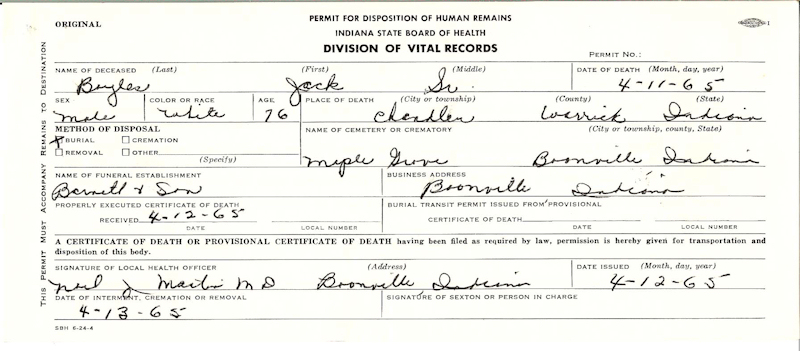 ORIGINAL
PERMIT FOR DISPOSITION OF HUMAN REMAINS
INDIANA STATE BOARD OF HEALTH
DIVISION OF VITAL RECORDS
PERMIT NO.:
THIS PERMIT MUST ACCOMPANY REMAINS TO DESTINATION
NAME OF DECEASED (Last) (First) (Middle) DATE OF DEATH (Month, day, year)
Boyles Jack Sr. 4-11-65
SEX COLOR OR RACE AGE PLACE OF DEATH (City or township) (County) (State)
Male White 76 Chandler Warrick Indiana
METHOD OF DISPOSAL NAME OF CEMETERY OR CREMATORY (City or township, county, State)
X BURIAL CREMATION
REMOVAL OTHER (Specify)
Maple Grove Boonville Indiana
NAME OF FUNERAL ESTABLISHMENT BUSINESS ADDRESS
Barnett & Son Boonville Indiana
PROPERLY EXECUTED CERTIFICATE OF DEATH BURIAL TRANSIT PERMIT ISSUED FROM PROVISIONAL
RECEIVED 4-12-65 CERTIFICATE OF DEATH
DATE LOCAL NUMBER DATE LOCAL NUMBER
A CERTIFICATE OF DEATH OR PROVISIONAL CERTIFICATE OF DEATH having been filed as required by law, permission is hereby given for transportation and
disposition of this body.
SIGNATURE OF LOCAL HEALTH OFFICER (Address) DATE ISSUED (Month, day, year)
Neil J Martin M D Boonville, Indiana 4-12-65
DATE OF INTERMENT, CREMATION OR REMOVAL SIGNATURE OF SEXTON OR PERSON IN CHARGE
4-13-65
SBH 6-24-4